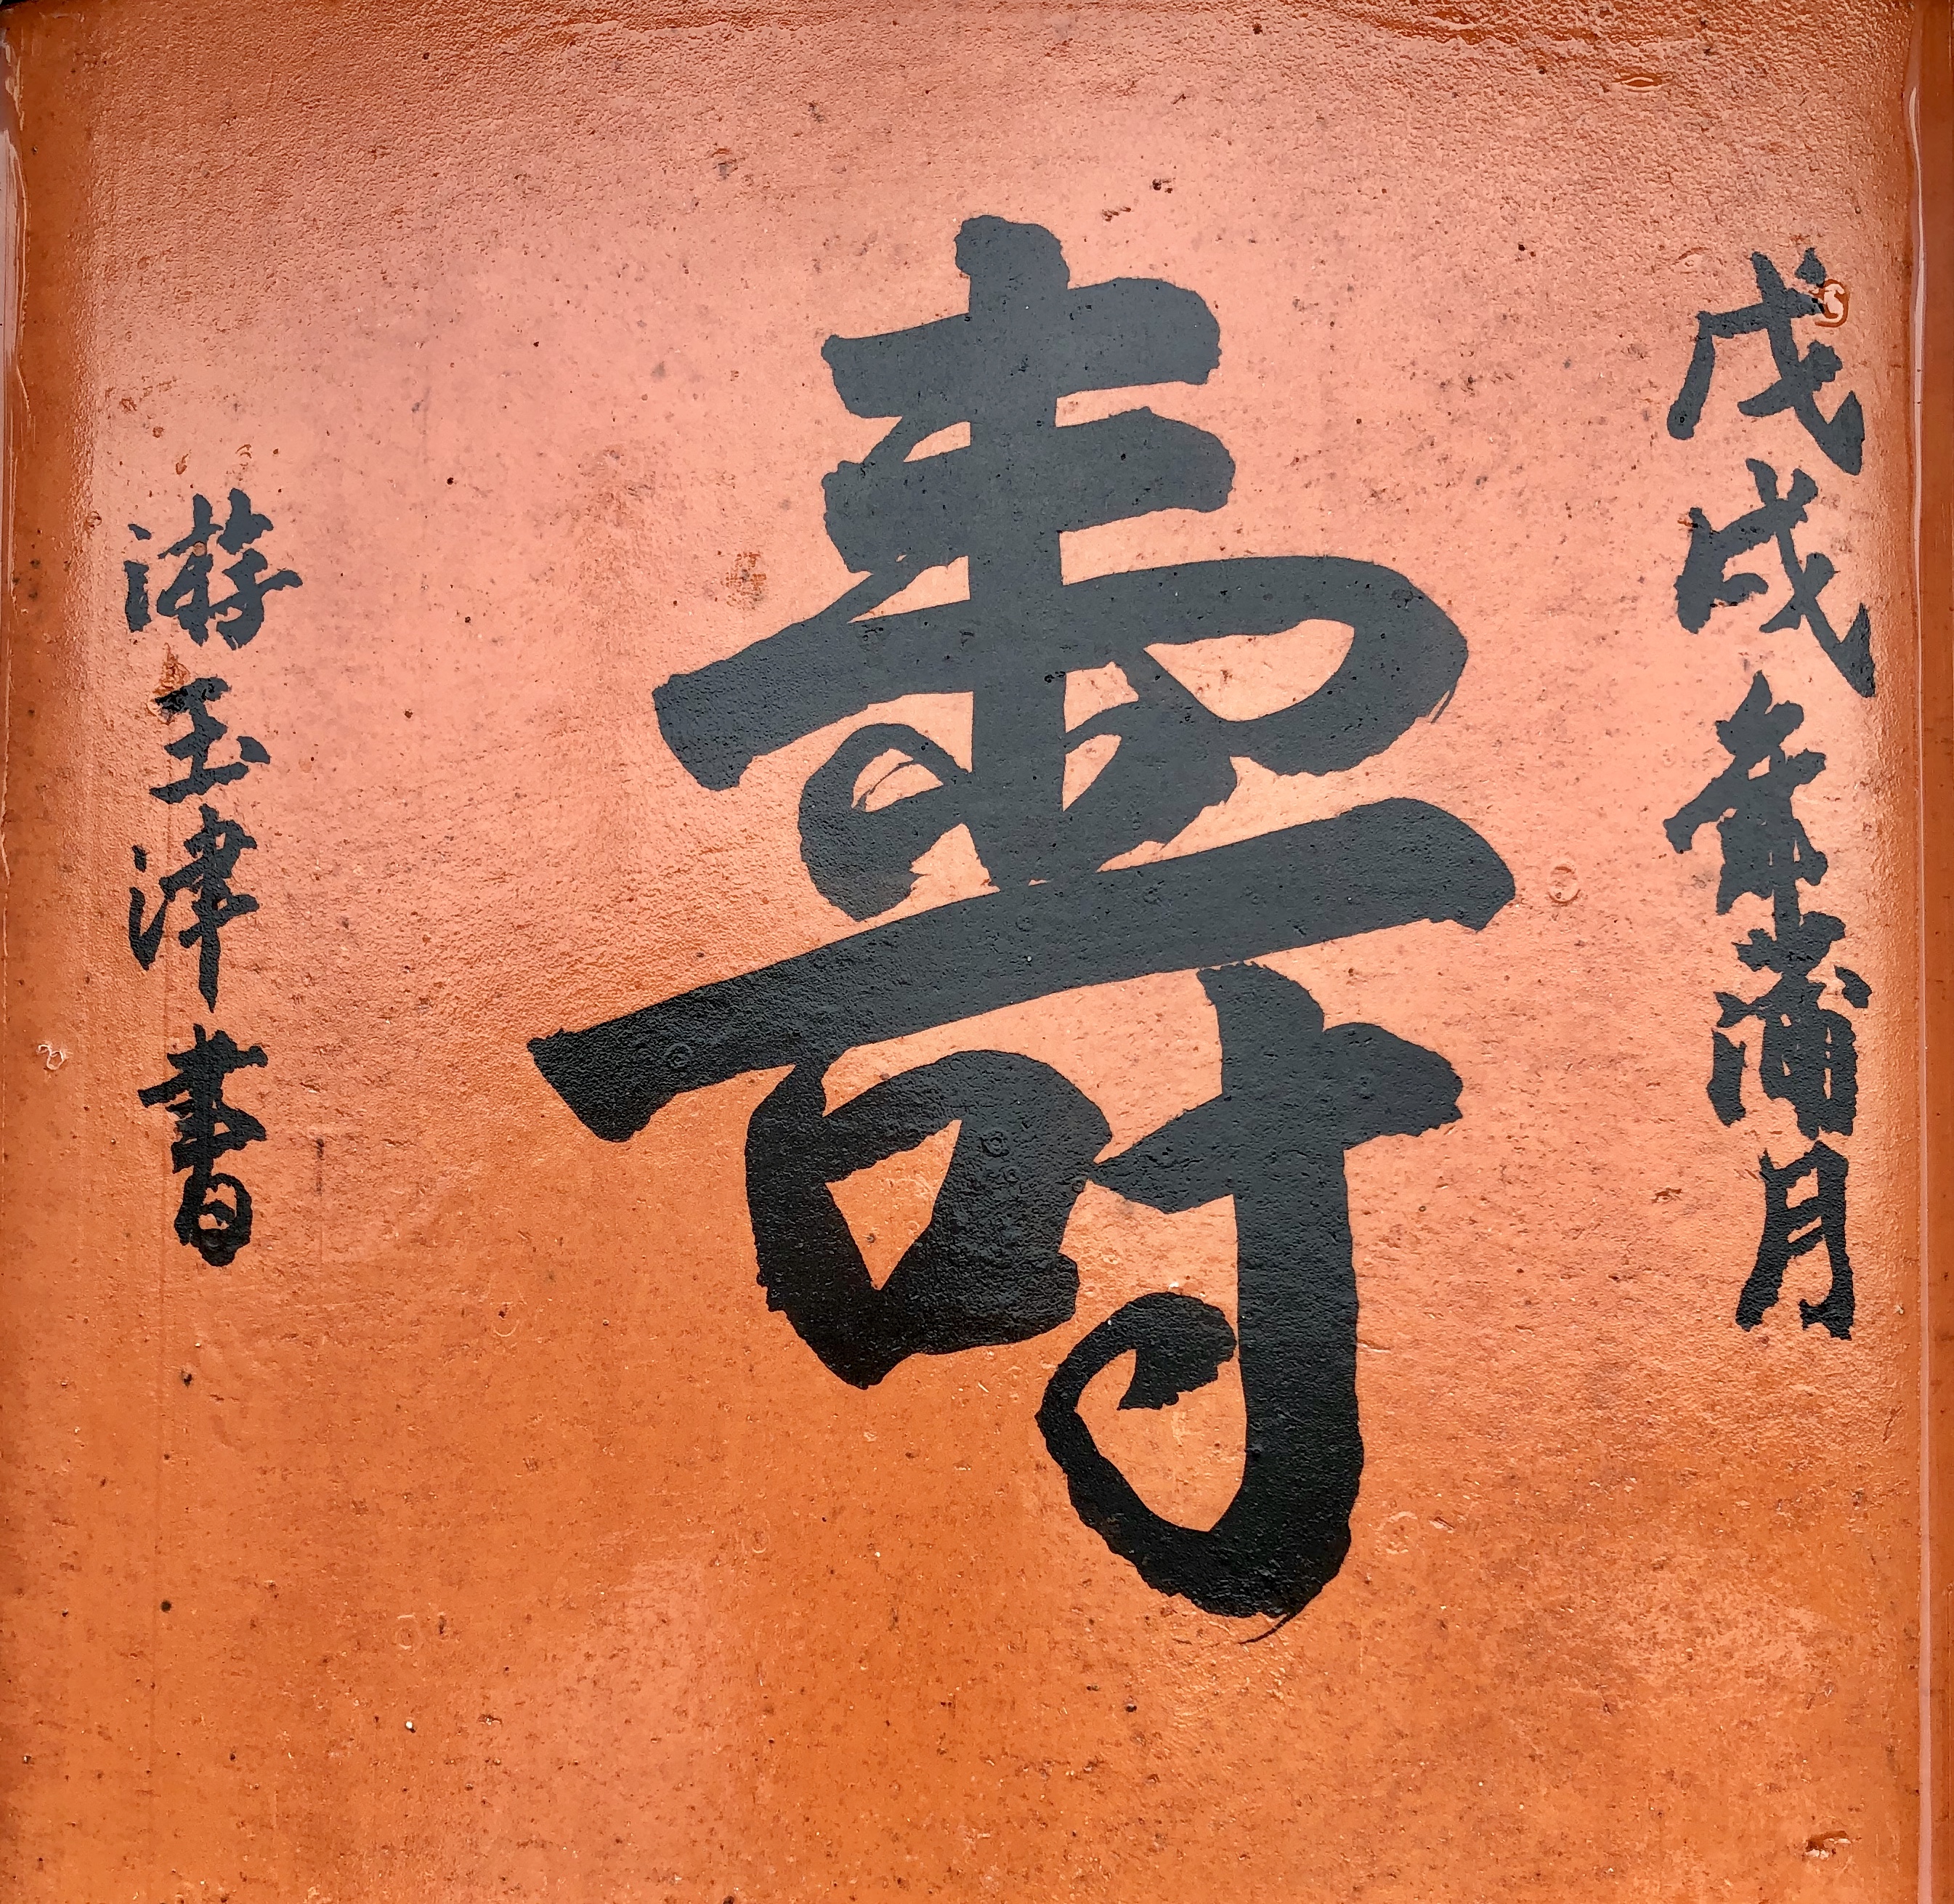 戊戌年蒲月
壽
游玉津書